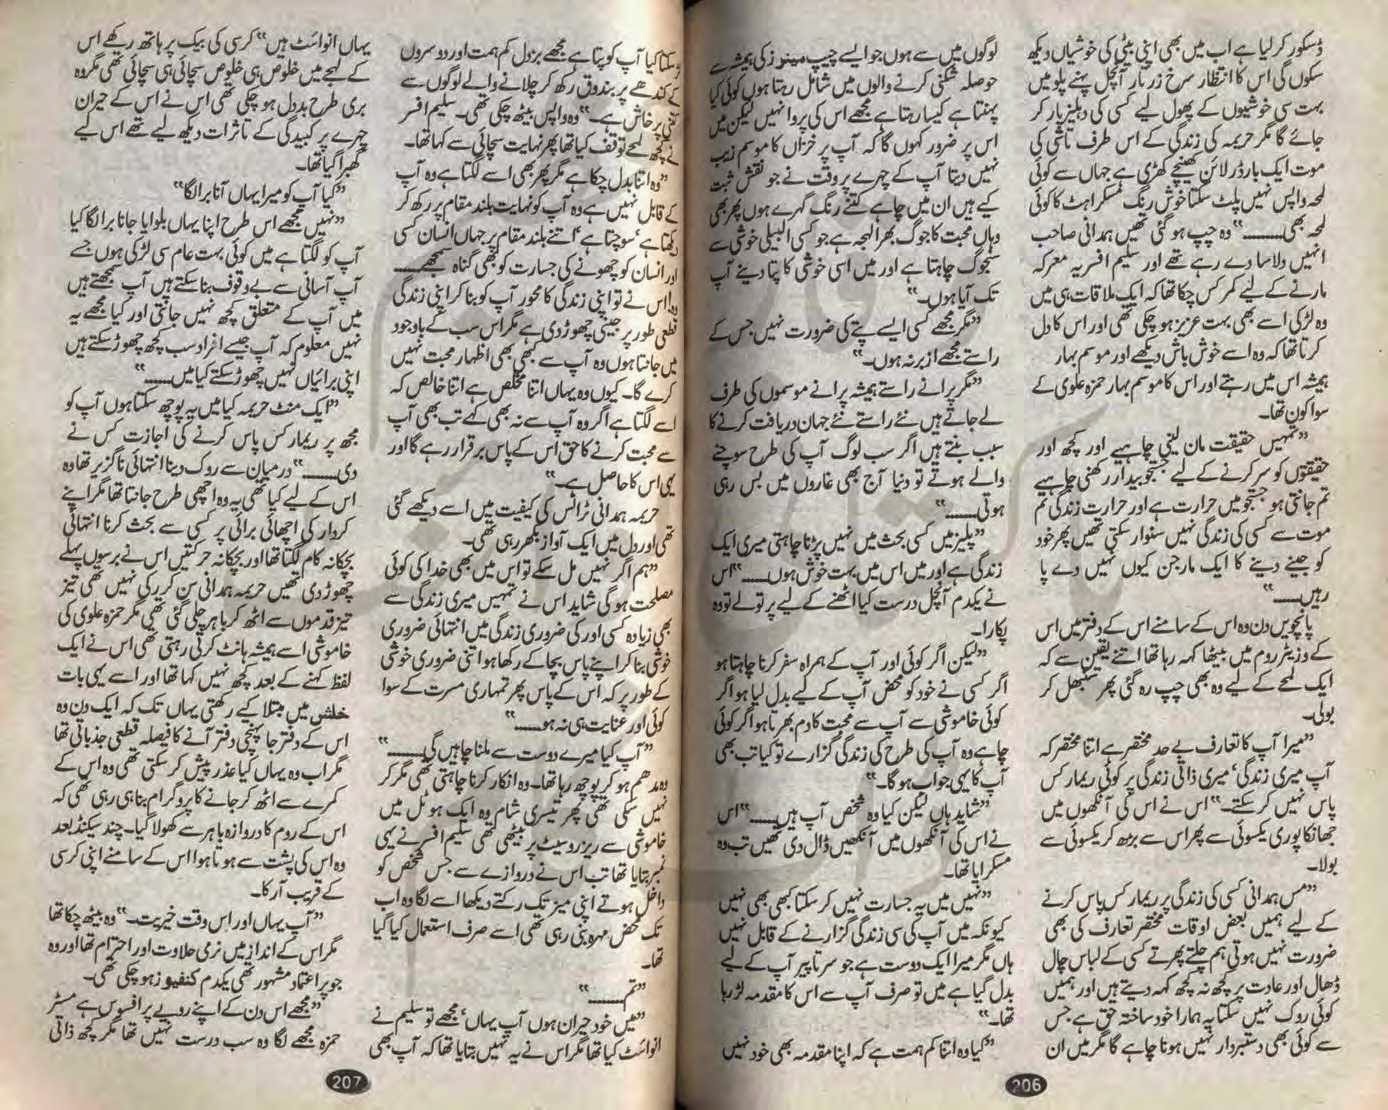 ڈسکور کر لیا ہے اب میں بھی اپنی بیٹی کی خوشیاں دیکھ
سکوں گی اس کا انتظار سرخ زر تار آنچل پہنے پلو میں
بہت سی خوشیوں کے پھول لیے کسی کی دہلیز پار کر
جائے گا مگر حریمہ کی زندگی کے اس طرف تاشی کی
موت ایک بارڈر لائن کھینچے کھڑی ہے جہاں سے کوئی
لمحہ واپس نہیں پلٹ سکتا خوش رنگ مسکراہٹ کا کوئی
لمحہ بھی......“ وہ چپ ہو گئی تھیں ہمدانی صاحب
انہیں دلاسا دے رہے تھے اور سلیم افسر یہ معرکہ
مارنے کے لیے کمر کس چکا تھا کہ ایک ملاقات ہی میں
وہ لڑکی اسے بھی بہت عزیز ہو چکی تھی اور اس کا دل
کرتا تھا کہ وہ اسے خوش باش دیکھے اور موسم بہار
ہمیشہ اس میں رہتے اور اس کا موسم بہار حمزہ علوی کے
سوا کون تھا۔
”تمہیں حقیقت مان لینی چاہیے اور کچھ اور
حقیقتوں کو سر کرنے کے لیے جستجو بیدار رکھنی چاہیے
تم جانتی ہو جستجو میں حرارت ہے اور حرارت زندگی تم
موت سے کسی کی زندگی نہیں سنوار سکتی تھیں پھر خود
کو جینے دینے کا ایک مارجن کیوں نہیں دے پا
رہیں......“
پانچویں دن وہ اس کے سامنے اس کے دفتر میں اس
کے وزیٹر روم میں بیٹھا کہہ رہا تھا اتنے یقین سے کہ
ایک لمحے کے لیے وہ بھی چپ رہ گئی پھر سنبھل کر
بولی۔
”میرا آپ کا تعارف بے حد مختصر ہے اتنا مختصر کہ
آپ میری زندگی‘ میری ذاتی زندگی پر کوئی ریمارکس
پاس نہیں کر سکتے۔“ اس نے اس کی آنکھوں میں
جھانکا پوری یکسوئی سے پھر اس سے بڑھ کر یکسوئی سے
بولا۔
”مس ہمدانی کسی کی زندگی پر ریمارکس پاس کرنے
کے لیے ہمیں بعض اوقات مختصر تعارف کی بھی
ضرورت نہیں ہوتی ہم چلتے پھرتے کسی کے لباس چال
ڈھال اور عادت پر کچھ نہ کچھ کہہ دیتے ہیں اور ہمیں
کوئی روک نہیں سکتا یہ ہمارا خود ساختہ حق ہے جس
سے کوئی بھی دستبردار نہیں ہونا چاہے گا مگر میں ان
لوگوں میں سے ہوں جو ایسے چیپ مینوز کی ہمیشہ
حوصلہ شکنی کرنے والوں میں شامل رہتا ہوں کوئی کیا
پہنتا ہے کیسا رہتا ہے مجھے اس کی پروا نہیں لیکن میں
اس پر ضرور کہوں گا کہ آپ پر خزاں کا موسم زیب
نہیں دیتا آپ کے چہرے پر وقت نے جو نقش ثبت
کیے ہیں ان میں چاہے کتنے رنگ گہرے ہوں پھر بھی
وہاں محبت کا جوگ بھرا لہجہ ہے جو کسی البیلی خوشی سے
سنجوگ چاہتا ہے اور میں اسی خوشی کا پتا دینے آپ
تک آیا ہوں۔“
”مگر مجھے کسی ایسے پتے کی ضرورت نہیں جس کے
راستے مجھے ازبر نہ ہوں۔“
”مگر پرانے راستے ہمیشہ پرانے موسموں کی طرف
لے جاتے ہیں نئے راستے نئے جہان دریافت کرنے کا
سبب بنتے ہیں اگر سب لوگ آپ کی طرح سوچنے
والے ہوتے تو دنیا آج بھی غاروں میں بس رہی
ہوتی......“
”پلیز میں کسی بحث میں نہیں پڑنا چاہتی میری ایک
زندگی ہے اور میں اس میں بہت خوش ہوں......“ اس
نے یکدم آنچل درست کیا اٹھنے کے لیے پر تولے تو وہ
پکارا۔
”لیکن اگر کوئی اور آپ کے ہمراہ سفر کرنا چاہتا ہو
اگر کسی نے خود کو محض آپ کے لیے بدل لیا ہو اگر
کوئی خاموشی سے آپ سے محبت کا دم بھرتا ہو اگر کوئی
چاہے وہ آپ کی طرح کی زندگی گزارے تو کیا تب بھی
آپ کا یہی جواب ہو گا۔“
”شاید ہاں لیکن کیا وہ شخص آپ ہیں......“ اس
نے اس کی آنکھوں میں آنکھیں ڈال دی تھیں تب وہ
مسکرایا تھا۔
”نہیں میں یہ جسارت نہیں کر سکتا کبھی بھی نہیں
کیونکہ میں آپ کی سی زندگی گزارنے کے قابل نہیں
ہاں مگر میرا ایک دوست ہے جو سر تا پیر آپ کے لیے
بدل گیا ہے میں تو صرف آپ سے اس کا مقدمہ لڑ رہا
تھا۔“
”کیا وہ اتنا کم ہمت ہے کہ اپنا مقدمہ بھی خود نہیں
206
لڑ سکتا کیا آپ کو پتا ہے مجھے بزدل کم ہمت اور دوسروں
کے کندھے پر بندوق رکھ کر چلانے والے لوگوں سے
کتنی پرخاش ہے۔“ وہ واپس بیٹھ چکی تھی۔ سلیم افسر
نے کچھ لمحے توقف کیا تھا پھر نہایت سچائی سے کہا تھا۔
”وہ اتنا بدل چکا ہے مگر پھر بھی اسے لگتا ہے وہ آپ
کے قابل نہیں ہے وہ آپ کو نہایت بلند مقام پر رکھ کر
دیکھتا ہے‘ سوچتا ہے‘ اتنے بلند مقام پر جہاں انسان کسی
اور انسان کو چھونے کی جسارت کو بھی گناہ سمجھے......
وہ! اس نے تو اپنی زندگی کا محور آپ کو بنا کر اپنی زندگی
قطعی طور پر جینی چھوڑ دی ہے مگر اس سب کے باوجود
میں جانتا ہوں وہ آپ سے کبھی بھی اظہار محبت نہیں
کرے گا۔ کیوں وہ یہاں اتنا مخلص ہے اتنا خالص کہ
اسے لگتا ہے اگر وہ آپ سے نہ بھی کہے تب بھی آپ
سے محبت کرنے کا حق اس کے پاس برقرار رہے گا اور
یہی اس کا حاصل ہے۔“
حریمہ ہمدانی ٹرانس کی کیفیت میں اسے دیکھے گئی
تھی اور دل میں ایک آواز بکھر رہی تھی۔
”ہم اگر نہیں مل سکے تو اس میں بھی خدا کی کوئی
مصلحت ہو گی شاید اس نے تمہیں میری زندگی سے
بھی زیادہ کسی اور کی ضروری زندگی میں انتہائی ضروری
خوشی بنا کر اپنے پاس بچا کے رکھا ہو اتنی ضروری خوشی
کے طور پر کہ اس کے پاس پھر تمہاری مسرت کے سوا
کوئی اور عنایت ہی نہ ہو......“
”آپ کیا میرے دوست سے ملنا چاہیں گی......“
وہ مدھم ہو کر پوچھ رہا تھا۔ وہ انکار کرنا چاہتی تھی مگر کر
نہیں سکی تھی پھر تیسری شام وہ ایک ہوٹل میں
خاموشی سے ریزرو سیٹ پر بیٹھی تھی سلیم افسر نے یہی
نمبر بتایا تھا تب اس نے دروازے سے جس شخص کو
داخل ہوتے اپنی میز تک رکتے دیکھا اسے لگا وہ اب
تک محض مہرہ بنی رہی تھی اسے صرف استعمال کیا گیا
تھا۔
”تم......“
”میں خود حیران ہوں آپ یہاں‘ مجھے تو سلیم نے
انوائٹ کیا تھا مگر اس نے یہ نہیں بتایا تھا کہ آپ بھی
یہاں انوائٹ ہیں“ کرسی کی بیک پر ہاتھ رکھے اس
کے لہجے میں خلوص ہی خلوص سچائی ہی سچائی تھی مگر وہ
بری طرح بددل ہو چکی تھی اس نے اس کے حیران
چہرے پر کبیدگی کے تاثرات دیکھ لیے تھے اس لیے
گھبرا گیا تھا۔
”کیا آپ کو میرا یہاں آنا برا لگا“
”نہیں مجھے اس طرح اپنا یہاں بلوایا جانا برا لگا کیا
آپ کو لگتا ہے میں کوئی بہت عام سی لڑکی ہوں جسے
آپ آسانی سے بے وقوف بنا سکتے ہیں آپ سمجھتے ہیں
میں آپ کے متعلق کچھ نہیں جانتی اور کیا مجھے یہ
نہیں معلوم کہ آپ جیسے افراد سب کچھ چھوڑ سکتے ہیں
اپنی برائیاں نہیں چھوڑ سکتے کیا میں......“
”ایک منٹ حریمہ کیا میں یہ پوچھ سکتا ہوں آپ کو
مجھ پر ریمارکس پاس کرنے کی اجازت کس نے
دی......“ درمیان سے روک دینا انتہائی ناگزیر تھا وہ
اس کے لیے کیا تھی یہ وہ اچھی طرح جانتا تھا مگر اپنے
کردار کی اچھائی برائی پر کسی سے بحث کرنا انتہائی
بچکانہ کام لگتا تھا اور بچکانہ حرکتیں اس نے برسوں پہلے
چھوڑ دی تھیں حریمہ ہمدانی سن کر رکی نہیں تھی تیز
تیز قدموں سے اٹھ کر باہر چلی گئی تھی مگر حمزہ علوی کی
خاموشی اسے ہمیشہ ہانٹ کرتی رہتی تھی اس نے ایک
لفظ کہنے کے بعد کچھ نہیں کہا تھا اور اسے یہی بات
خلش میں مبتلا کیے رکھتی یہاں تک کہ ایک دن وہ
اس کے دفتر جا پہنچی دفتر آنے کا فیصلہ قطعی جذباتی تھا
مگر اب وہ یہاں کیا عذر پیش کر سکتی تھی وہ اس کے
کمرے سے اٹھ کر جانے کا پروگرام بنا ہی رہی تھی کہ
اس کے روم کا دروازہ باہر سے کھولا گیا۔ چند سیکنڈ بعد
وہ اس کی پشت سے ہوتا ہوا اس کے سامنے اپنی کرسی
کے قریب آ رکا۔
”آپ یہاں اور اس وقت خیریت۔“ وہ بیٹھ چکا تھا
مگر اس کے انداز میں نرمی حلاوت اور احترام تھا اور وہ
جو پراعتماد مشہور تھی یکدم کنفیوز ہو چکی تھی۔
”مجھے اس دن کے اپنے رویے پر افسوس ہے مسٹر
حمزہ مجھے لگا وہ سب درست نہیں تھا مگر کچھ ذاتی
207